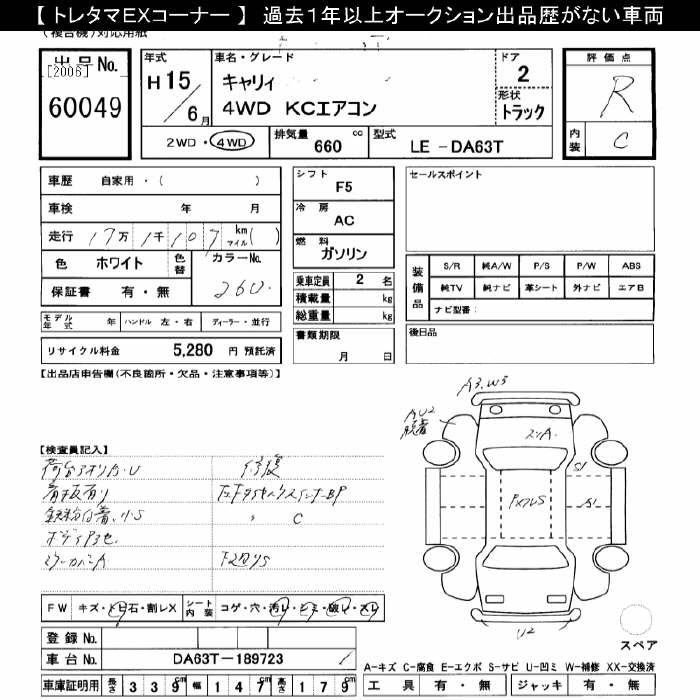 【 トレタマEXコーナー 】 過去1年以上オークション出品歴がない車両
(複合機)対応用紙
出品No.
[2006]
60049
年式
H15/6月
車名・グレード
キャリィ
4WD KCエアコン
ドア
2
形状
トラック
評価点
R
内装
C
2WD・4WD
排気量 660 cc
型式 LE-DA63T
車歴 自家用・( )
車検 年 月
走行 17万1千107 km マイル( )
色 ホワイト 色替 カラーNo. 26U
保証書 有・無
モデル年式 年 ハンドル 左・右 ディーラー・並行
リサイクル料金 5,280 円 預託済
シフト
F5
冷房
AC
燃料
ガソリン
乗車定員 2 名
積載量 kg
総重量 kg
書類期限
月 日
セールスポイント
装備品
S/R 純A/W P/S P/W ABS
純TV 純ナビ 革シート 外ナビ エアB
ナビ型番:
後日品
【出品店申告欄(不良箇所・欠品・注意事項等)】
【検査員記入】
荷台アオリカ・U 修復
看板有り
鉄粉付着、小S C
ミラーカバーA
A3.W3
AU2
S1
A1
U2
FW キズ・トビ石・割レX シート内装 コゲ・穴・汚レ・シミ・破レ・スレ
登録No.
車台No. DA63T-189723
車庫証明用 長さ 339cm 幅 147cm 高さ 179cm
スペア
A-キズ C-腐食 E-エクボ S-サビ U-凹ミ W-補修 XX-交換済
工具 有・無 ジャッキ 有・無